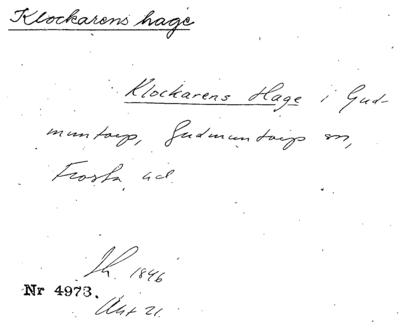 Klockarens hage
Klockarens Hage i Gud-
muntorp, Gudmuntorp sn,
Frosta hd
1846
Nr 4973.
Akt 21.